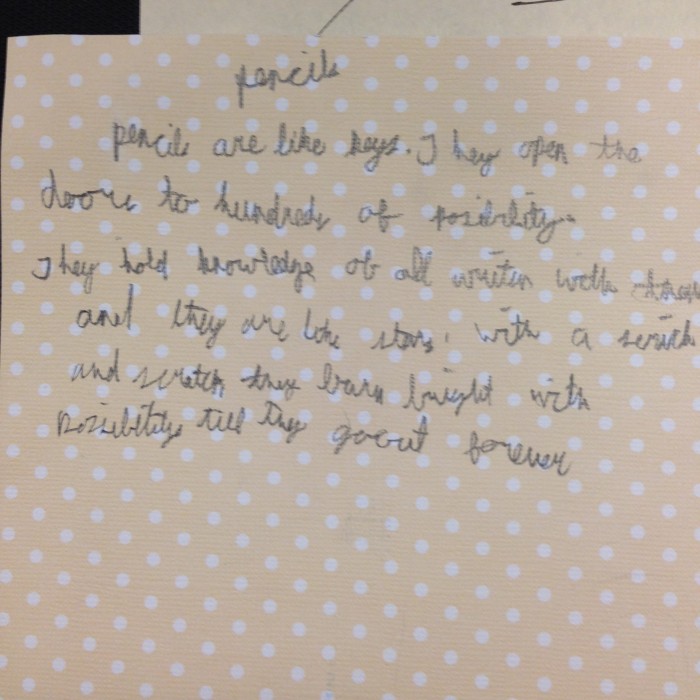 pencils
pencils are like keys. They open the
doors to hundreds of posibility.
They hold knowledge of all writen with them
and they are like stars, with a scrich
and scratch they burn bright with
possibility till they go out forever